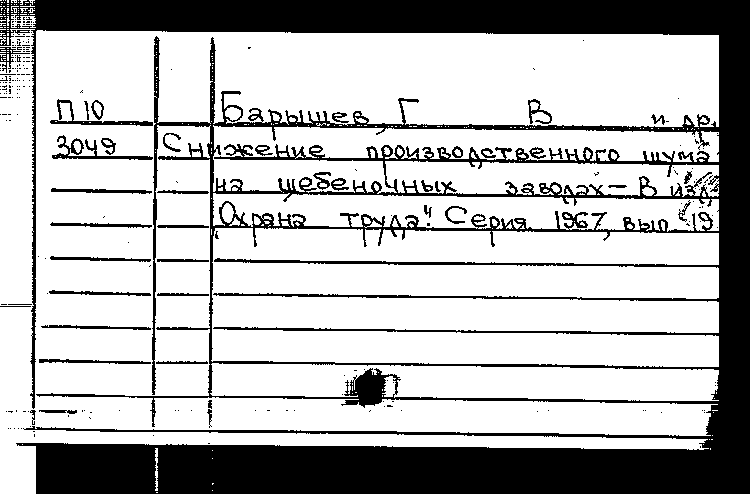 П 10 Барышев, Г В и др.
3049 Снижение производственного шума
на щебеночных заводах - В изд.
"Охрана труда". Серия 1967, вып. 19